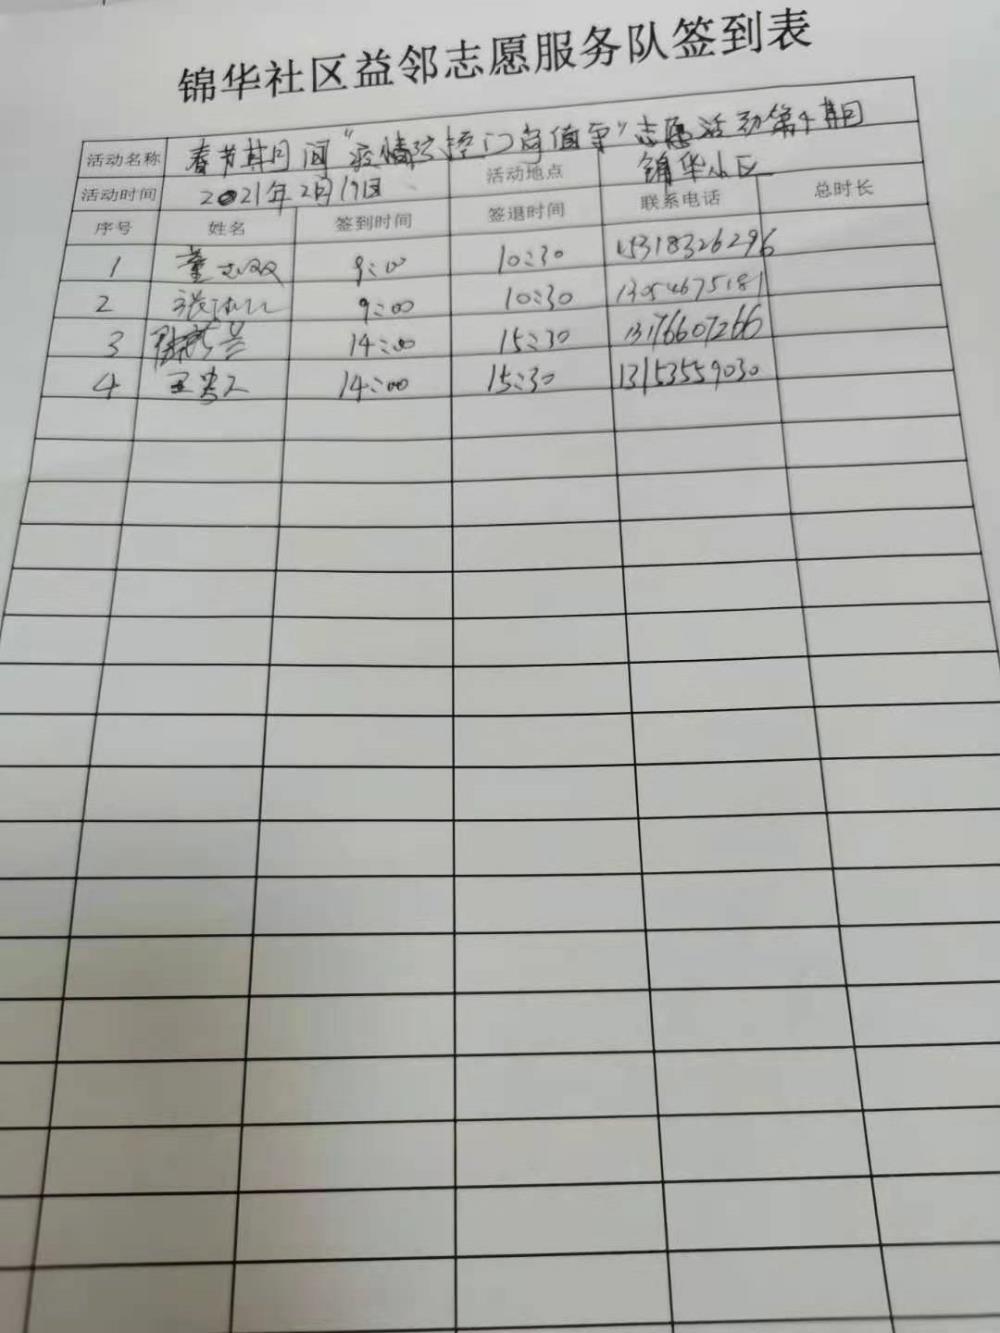 锦华社区益邻志愿服务队签到表
活动名称 春节期间"疫情防控门岗值守"志愿活动第十期
活动时间 2021年2月19日 活动地点 锦华小区
序号 姓名 签到时间 签退时间 联系电话 总时长
1 董 9:00 10:30 15318326296
2 张 9:00 10:30 13054675181
3 兰 14:00 15:30 13176607266
4 王 14:00 15:30 13153559030